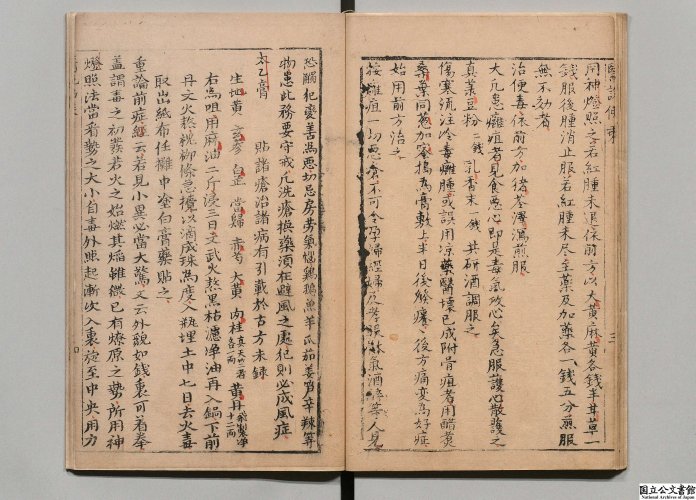 用神燈照之若紅腫未退依前方以大黃麻黃各錢半甘草一
錢服後腫消止服若紅腫未尽至藥及加藥各一錢五分煎服
無不効者
治便毒依前方加猪苓澤瀉煎服
大凡患癰疽者見食惡心即是毒氣攻心矣急服護心散護之
真菉豆粉 二錢 乳香末一錢 共研酒調服之
傷寒流注冷毒癰腫或誤用凉藥醫壞已成附骨疽者用醋煑
桑葉同葱加蜜搗為膏敷上半日後觧癢後方痛变為好症
始用前方治之
按癰疽一切惡瘡不可令孕婦經婦及孝服体氣酒醉等人見
恐觸犯变善為惡切忌房劳氣惱鷄鵝魚羊瓜茄姜胃辛辣等
物患此務要守戒凡洗瘡換藥須在避風之處犯則必成風症
太乙膏 貼諸瘡治諸病有引載於古方未錄
生地黃 玄參 白芷 當歸 赤芍 大黃 肉桂 各一兩 黃丹 十二兩
右為咀用麻油二斤浸三日文武火熬黑枯濾净油再入鍋下前
丹文火熬桃柳條急攪以滴成珠為度入瓶埋土中七日去火毒
取出紙布任攤中奎白膏藥貼之
重論前症經云若見小異必當大驚文云外貌如錢裏可着拳
盖謂毒之初發若火之始燃其焰雖微已有燎原之勢所用神
燈照法當看勢之大小自毒外照起漸次入裏旋至中央用力
国立公文書館
National Archives of Japan